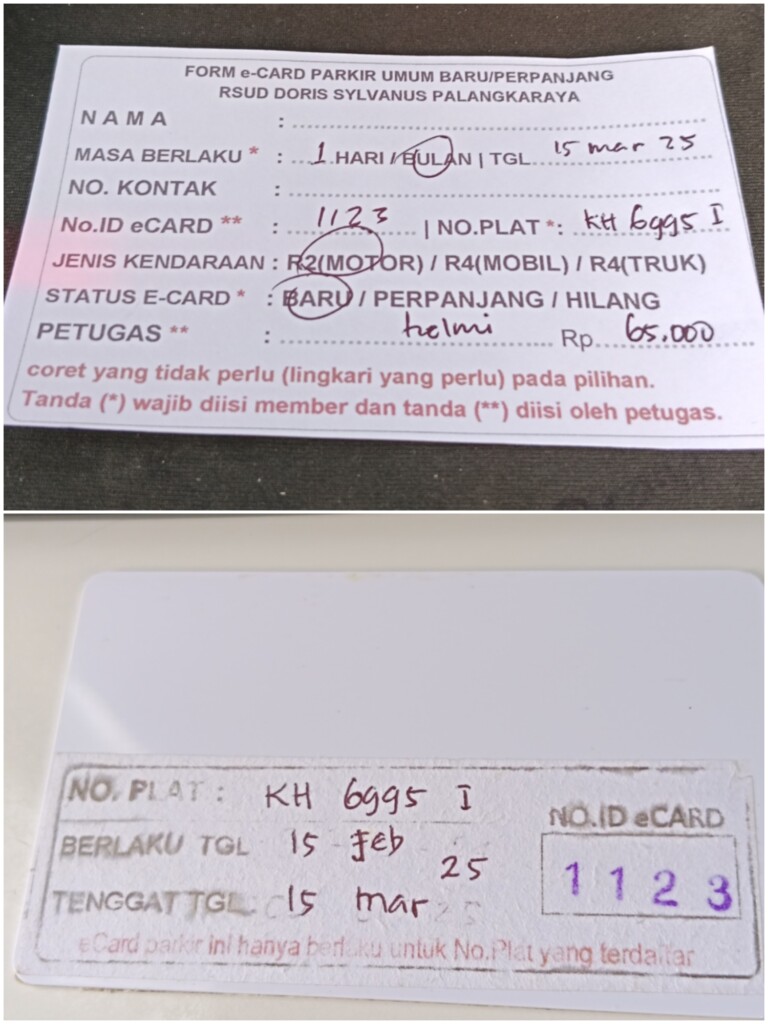 FORM e-CARD PARKIR UMUM BARU/PERPANJANG
RSUD DORIS SYLVANUS PALANGKARAYA
NAMA :
MASA BERLAKU * : 1 HARI / BULAN | TGL 15 mar 25
NO. KONTAK :
No.ID eCARD ** : 1123 | NO.PLAT *: KH 6995 I
JENIS KENDARAAN : R2(MOTOR) / R4(MOBIL) / R4(TRUK)
STATUS E-CARD * : BARU / PERPANJANG / HILANG
PETUGAS ** : helmi Rp. 65.000
coret yang tidak perlu (lingkari yang perlu) pada pilihan.
Tanda (*) wajib diisi member dan tanda (**) diisi oleh petugas.
NO. PLAT : KH 6995 I
NO.ID eCARD
BERLAKU TGL 15 Feb 25
1123
TENGGAT TGL 15 mar
eCard parkir ini hanya berlaku untuk No.Plat yang terdaftar